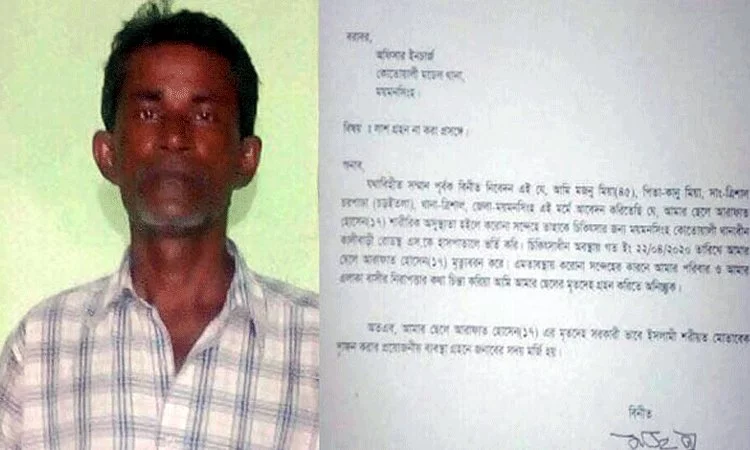 বরাবর,
অফিসার ইনচার্জ
কোতোয়ালী মডেল থানা,
ময়মনসিংহ।
বিষয় : লাশ গ্রহন না করা প্রসঙ্গে।
জনাব,
যথাবিহীত সম্মান পূর্বক বিনীত নিবেদন এই যে, আমি মজনু মিয়া(৪৫), পিতা-কালু মিয়া, সাং-ত্রিশাল
চরপাড়া (চড়ইতলা), থানা-ত্রিশাল, জেলা-ময়মনসিংহ এই মর্মে আবেদন করিতেছি যে, আমার ছেলে আরাফাত
হোসেন(১৭) শারীরিক অসুস্থতা হইলে করোনা সন্দেহে তাহাকে চিকিৎসার জন্য ময়মনসিংহ কোতোয়ালী থানাধীন
কালীবাড়ী রোডস্থ এস.কে হাসপাতালে ভর্তি করি। চিকিৎসাধীন অবস্থায় গত ইং ২২/০৪/২০২০ তারিখে আমার
ছেলে আরাফাত হোসেন(১৭) মৃত্যুবরন করে। এমতাবস্থায় করোনা সন্দেহের কারনে আমার পরিবার ও আমার
এলাকা বাসীর নিরাপত্তার কথা চিন্তা করিয়া আমি আমার ছেলের মৃতদেহ গ্রহন করিতে অনিচ্ছুক।
অতএব, আমার ছেলে আরাফাত হোসেন(১৭) এর মৃতদেহ সরকারী ভাবে ইসলামী শরীয়ত মোতাবেক
দাফন করার প্রয়োজনীয় ব্যবস্থা গ্রহনে জনাবের সদয় মর্জি হয়।
বিনীত